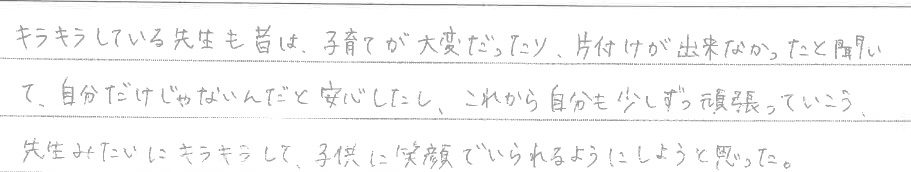 キラキラしている先生も昔は、子育てが大変だったり、片付けが出来なかったと聞い
て、自分だけじゃないんだと安心したし、これから自分も少しずつ頑張っていこう、
先生みたいにキラキラして、子供に笑顔でいられるようにしようと思った。